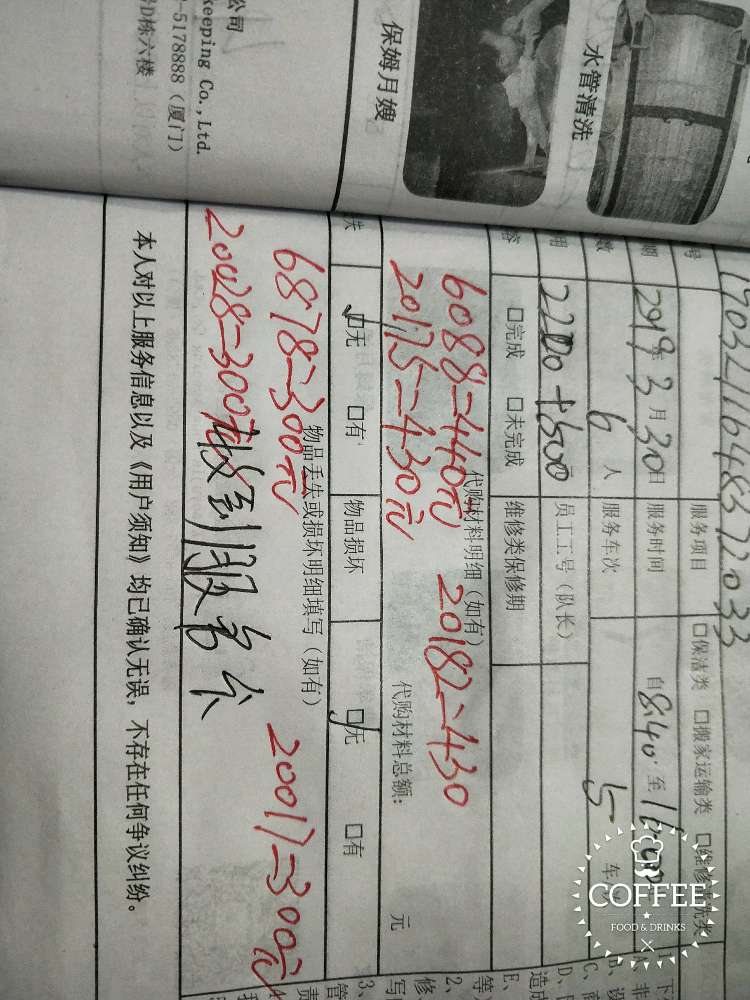 公司
keeping Co.,Ltd.
-5178888（厦门）
D栋六楼
保姆月嫂
水管清洗
19032116483 72033
号
服务项目
□保洁类 □搬家运输类 □维修清洗类
期
2019年3月30日
服务时间
自8:40 至
数
6人
服务车次
5 车
2200+500元
员工工号（队长）
容
□完成 □未完成
维修类保修期
代购材料明细（如有）
6088=440元 20182=430
20175=430元
代购材料总额： 元
失
□无 □有
物品损坏
□无 □有
物品丢失或损坏明细填写（如有）
6878=300元 20017=300元
20028=300元
收到
本人对以上服务信息以及《用户须知》均已确认无误，不存在任何争议纠纷。
COFFEE
FOOD & DRINKS